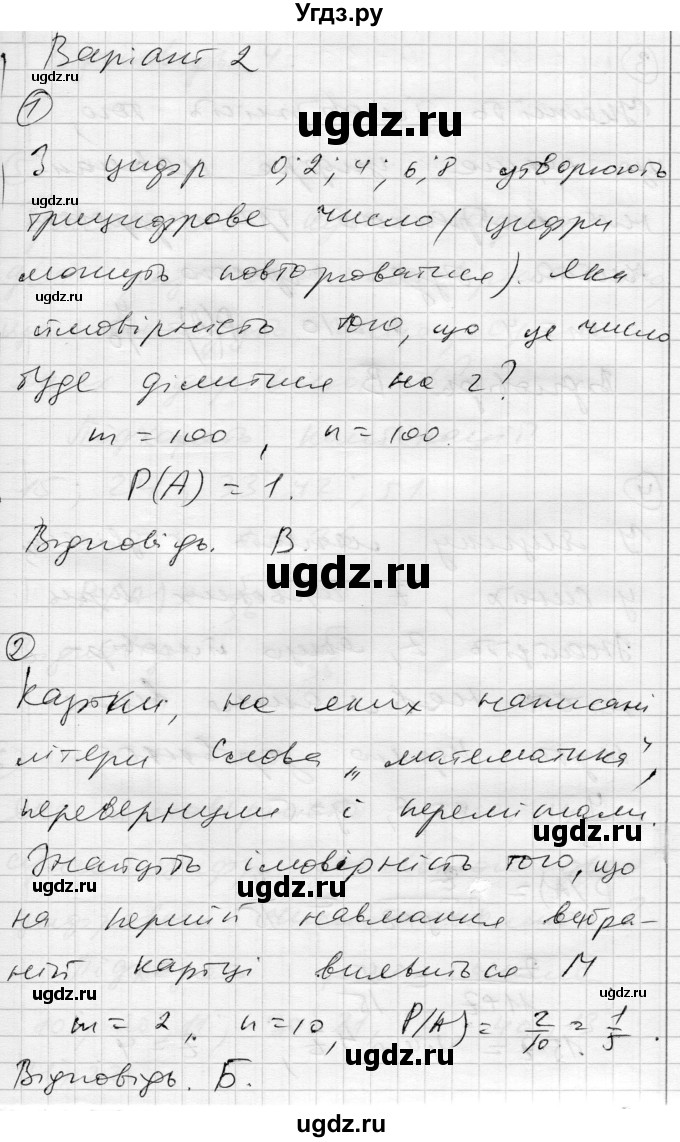 Угдз.ру
Варіант 2
ugdz.ru
1
ugdz.ru
З цифр 0; 2; 4; 6; 8 утворюють
ugdz.ru
трицифрове число (цифри
можуть повторюватися). Яка
ugdz.ru
ймовірність того, що це число
буде ділитися на 2?
m = 100, n = 100.
P(A) = 1.
ugdz.ru
Відповідь. В.
ugdz.ru
2
Картки, на яких написані
літери слова „математика",
перевернули і перемішали.
ugdz.ru
Знайдіть імовірність того, що
ugdz.ru
ugdz.ru
на першій навмання вибра-
ній картці виявиться М
ugdz.ru
ugdz.ru
m = 2, n = 10, P(A) = 2/10 = 1/5.
ugdz.ru
Відповідь. Б.
ugdz.ru
ugdz.ru